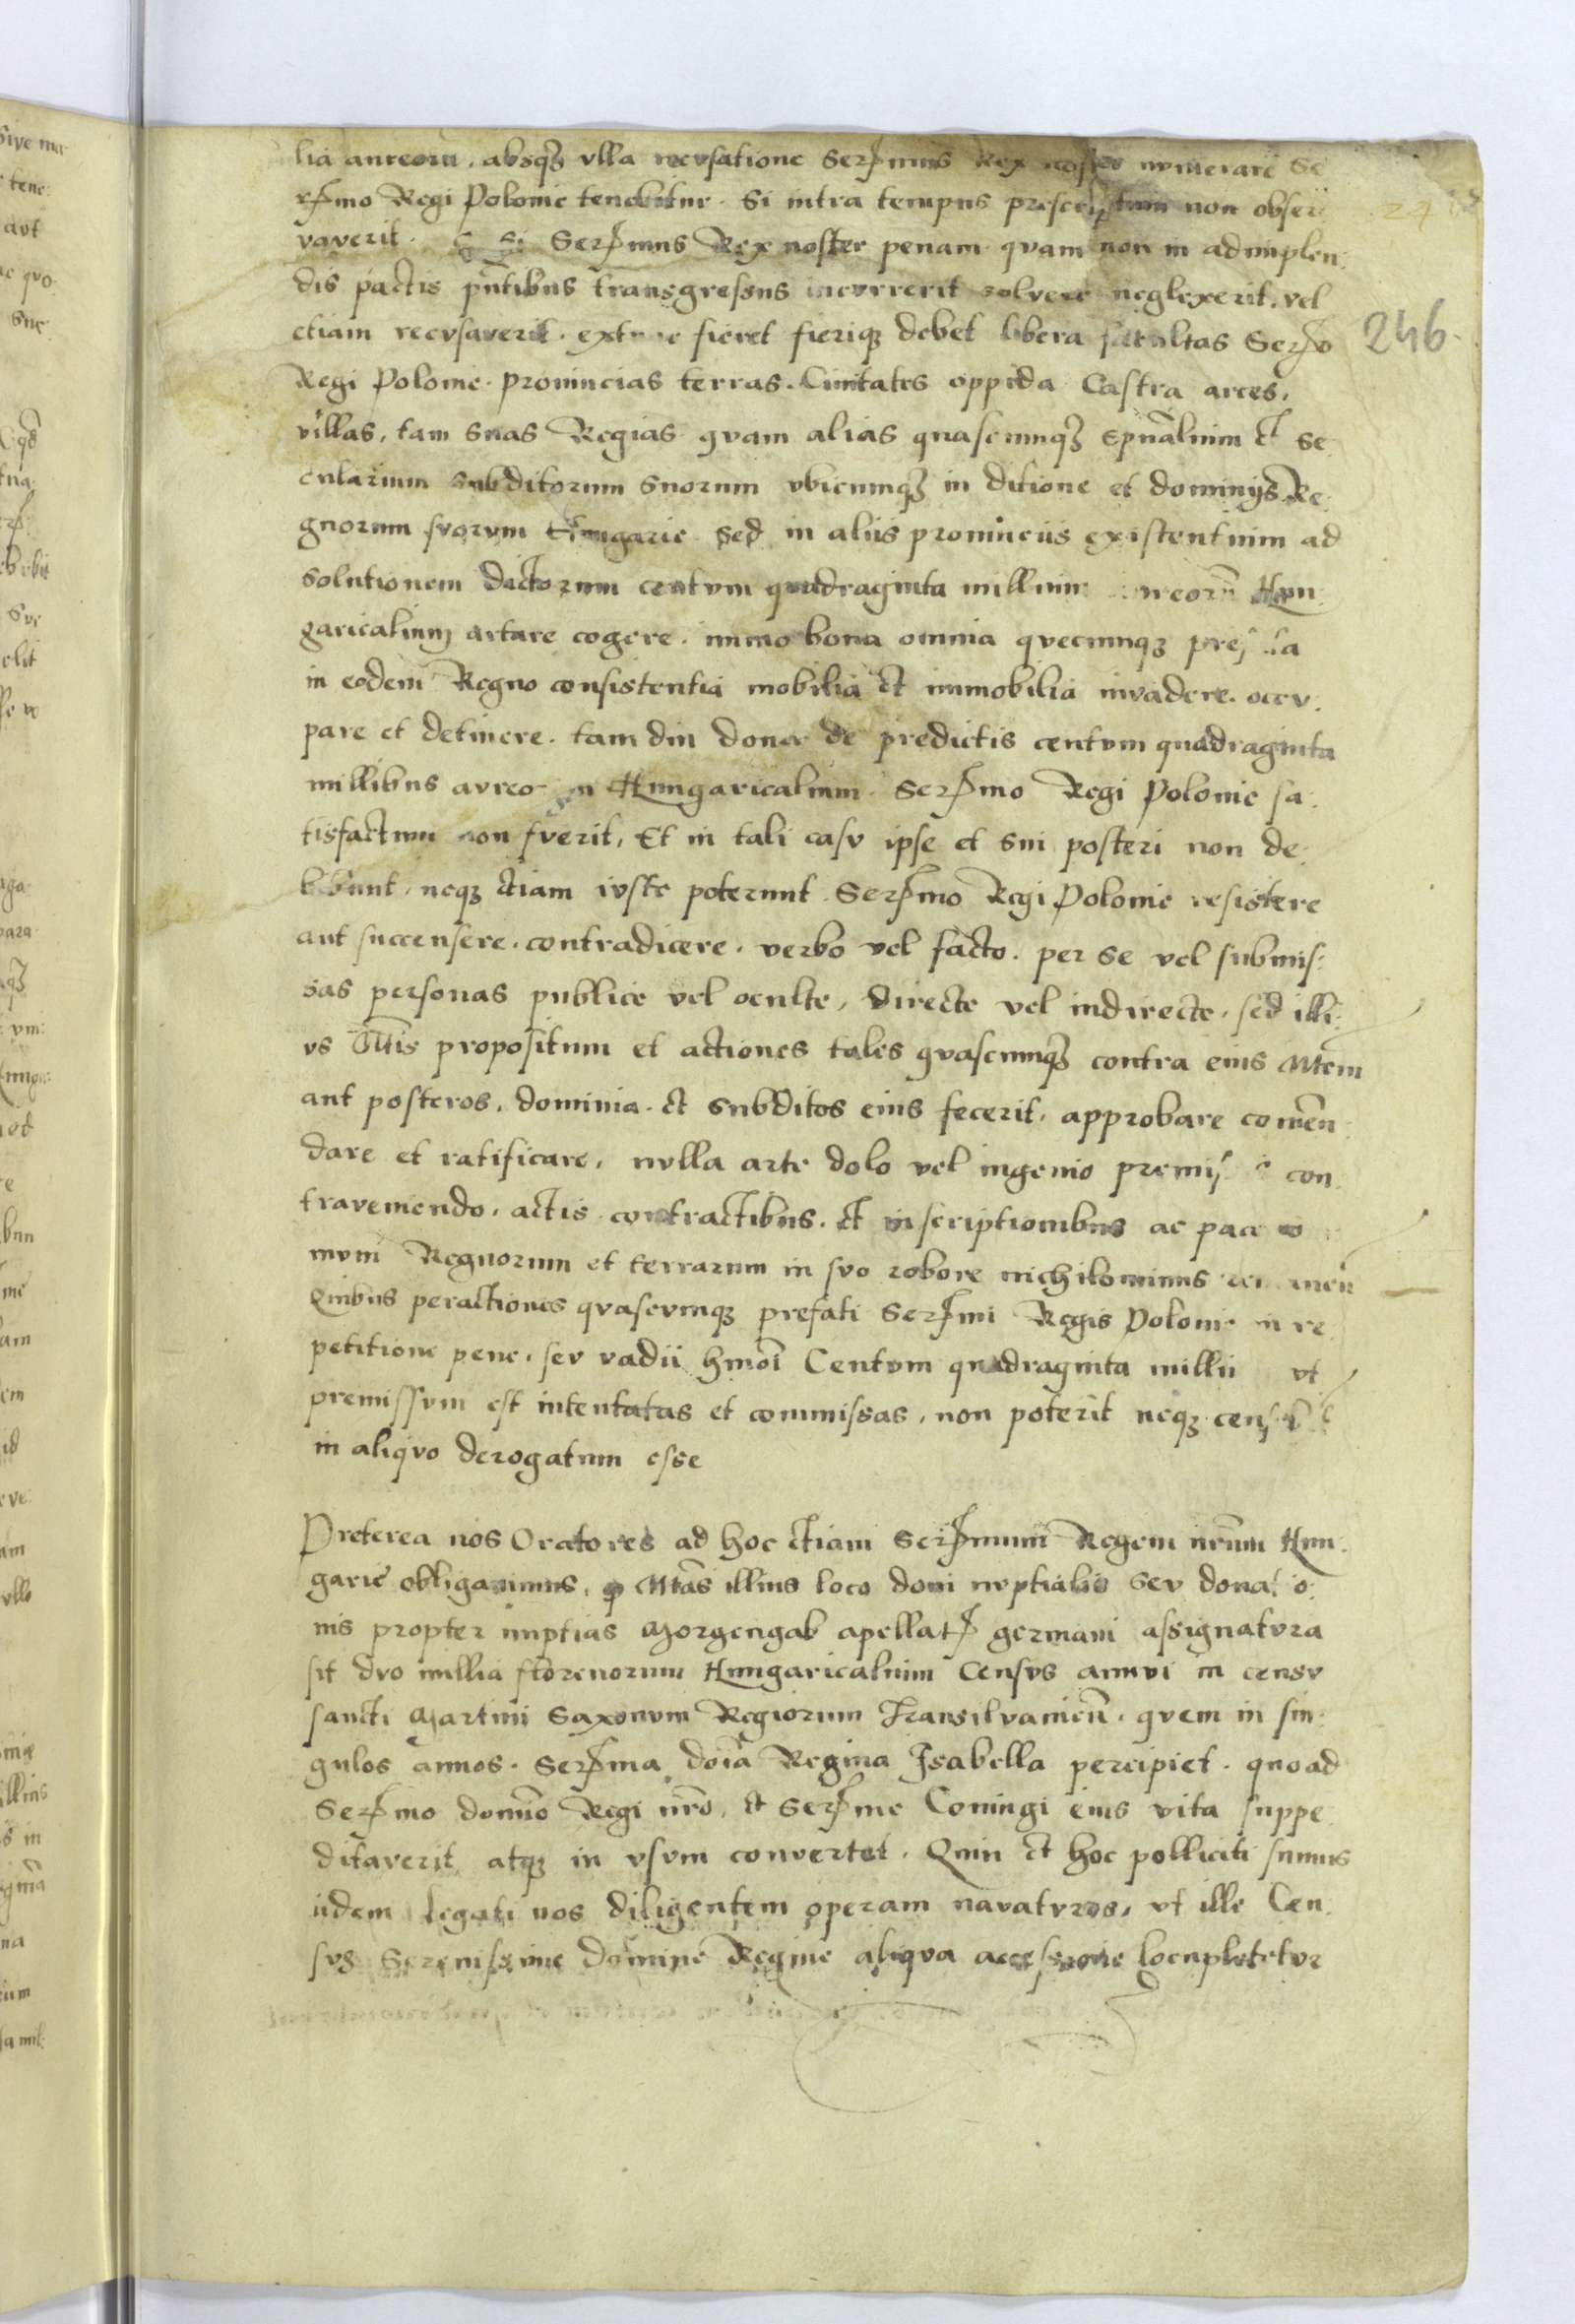 lia aureoru, absqȝ vlla recusatione Sermus Rex noster numerare Se
rmo Regi Polonie tenebitur. Si intra tempus prescriptum non obser
247
vaverit. Si Sermus Rex noster penam quam non in adimplen
dis pactis pntibus transgressus incurrerit solvere neglexerit, vel
etiam recusaverit. extunc fieret fierique debet libera facultas Sermo
246
Regi Polonie. provincias terras. Civitates oppida Castra arces,
villas, tam suas Regias quam alias quascunqȝ spualium et se
cularium subditorum suorum vbicumqȝ in ditione et dominijs Re
gnorum suorum Hungarie sed in aliis provinciis existentium ad
solutionem dictorum centum quadraginta millium aureoru Hun
garicalium artare cogere. immo bona omnia quecunqȝ
in eodem Regno consistentia mobilia et immobilia invadere. occu
pare et detinere. tam diu donec de predictis centum quadraginta
millibus aureorum Hungaricalium Sermo Regi Polonie sa
tisfactum non fuerit, Et in tali casu ipse et sui posteri non de
bebunt, neqȝ etiam iuste poterunt Sermo Regi Polonie resistere
aut succensere. contradicere. verbo vel facto. per se vel submis
sas personas publice vel oculte, directe vel indirecte. sed illi
us Mtis propositum et actiones tales quascunqȝ contra eius Mtem
aut posteros, dominia. et subditos eius fecerit, approbare comen
dare et ratificare, nulla arte dolo vel ingenio con
traveniendo. actis contractibus. et inscriptionibus ac
Regnorum et terrarum in suo robore nichilominus
Quibus peractiones quascumqȝ prefati Sermi Regis Polonie in re
petitione pene, seu vadii hmoi Centum quadraginta millii vt
premissum est intentatas et commissas, non poterit neqȝ
in aliquo derogatum esse
Preterea nos Oratores ad hoc etiam Sermum Regem nrum Hun
garie obligavimus, Mtas illius loco doni nuptialis seu donatio
nis propter nuptias Morgengab apellat germani assignatura
sit duo millia florenorum Hungaricalium Census annui in censu
sancti Martini Saxonum Regiorum Transilvanien. quem in sin
gulos annos. Serma doia Regina Isabella percipiet. quoad
Sermo domno Regi nro, et Serme Coniugi eius vita suppe
ditaverit atqȝ in vsum convertet. Quin et hoc polliciti sumus
iidem legati nos diligentem operam navaturos, vt ille Cen
sus Serenissime domine Regine aliqua accessione locupletetur